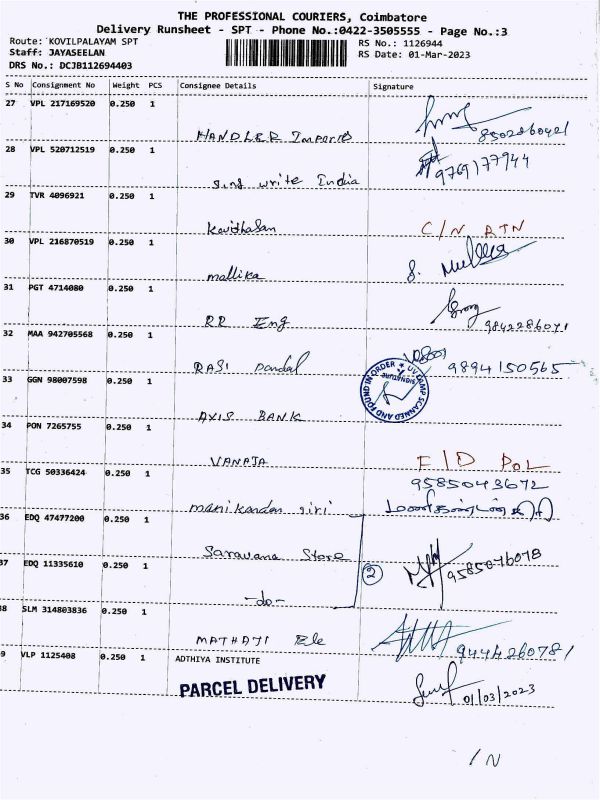 THE PROFESSIONAL COURIERS, Coimbatore
Delivery Runsheet - SPT - Phone No.:0422-3505555 - Page No.:3
Route: KOVILPALAYAM SPT
RS No.: 1126944
Staff: JAYASEELAN
RS Date: 01-Mar-2023
DRS No.: DCJB112694403
S No Consignment No Weight PCS Consignee Details Signature
27 VPL 217169520 0.250 1
HANDLER Imports 8502860421
28 VPL 520712519 0.250 1
9769177944
write India
29 TVR 4096921 0.250 1
Kavithasan C/N RTN
30 VPL 216870519 0.250 1
mallika
31 PGT 4714080 0.250 1
RR Eng 9842286071
32 MAA 942705568 0.250 1
RASI Pandal 9894150565
33 GGN 98007598 0.250 1
UV LAMP SCANNED AND FOUND IN ORDER
SIGNATURE
AXIS BANK
34 PON 7265755 0.250 1
VANAJA F/D POL
35 TCG 50336424 0.250 1
9585043672
manikandan giri மணிகண்டன் கிரி
36 EDQ 47477200 0.250 1
Saravana Store
37 EDQ 11335610 0.250 1
2 9585076078
-do-
38 SLM 314803836 0.250 1
MATHAJI Ele 9444260781
9 VLP 1125408 0.250 1 ADTHIYA INSTITUTE
PARCEL DELIVERY
01/03/2023
/ N